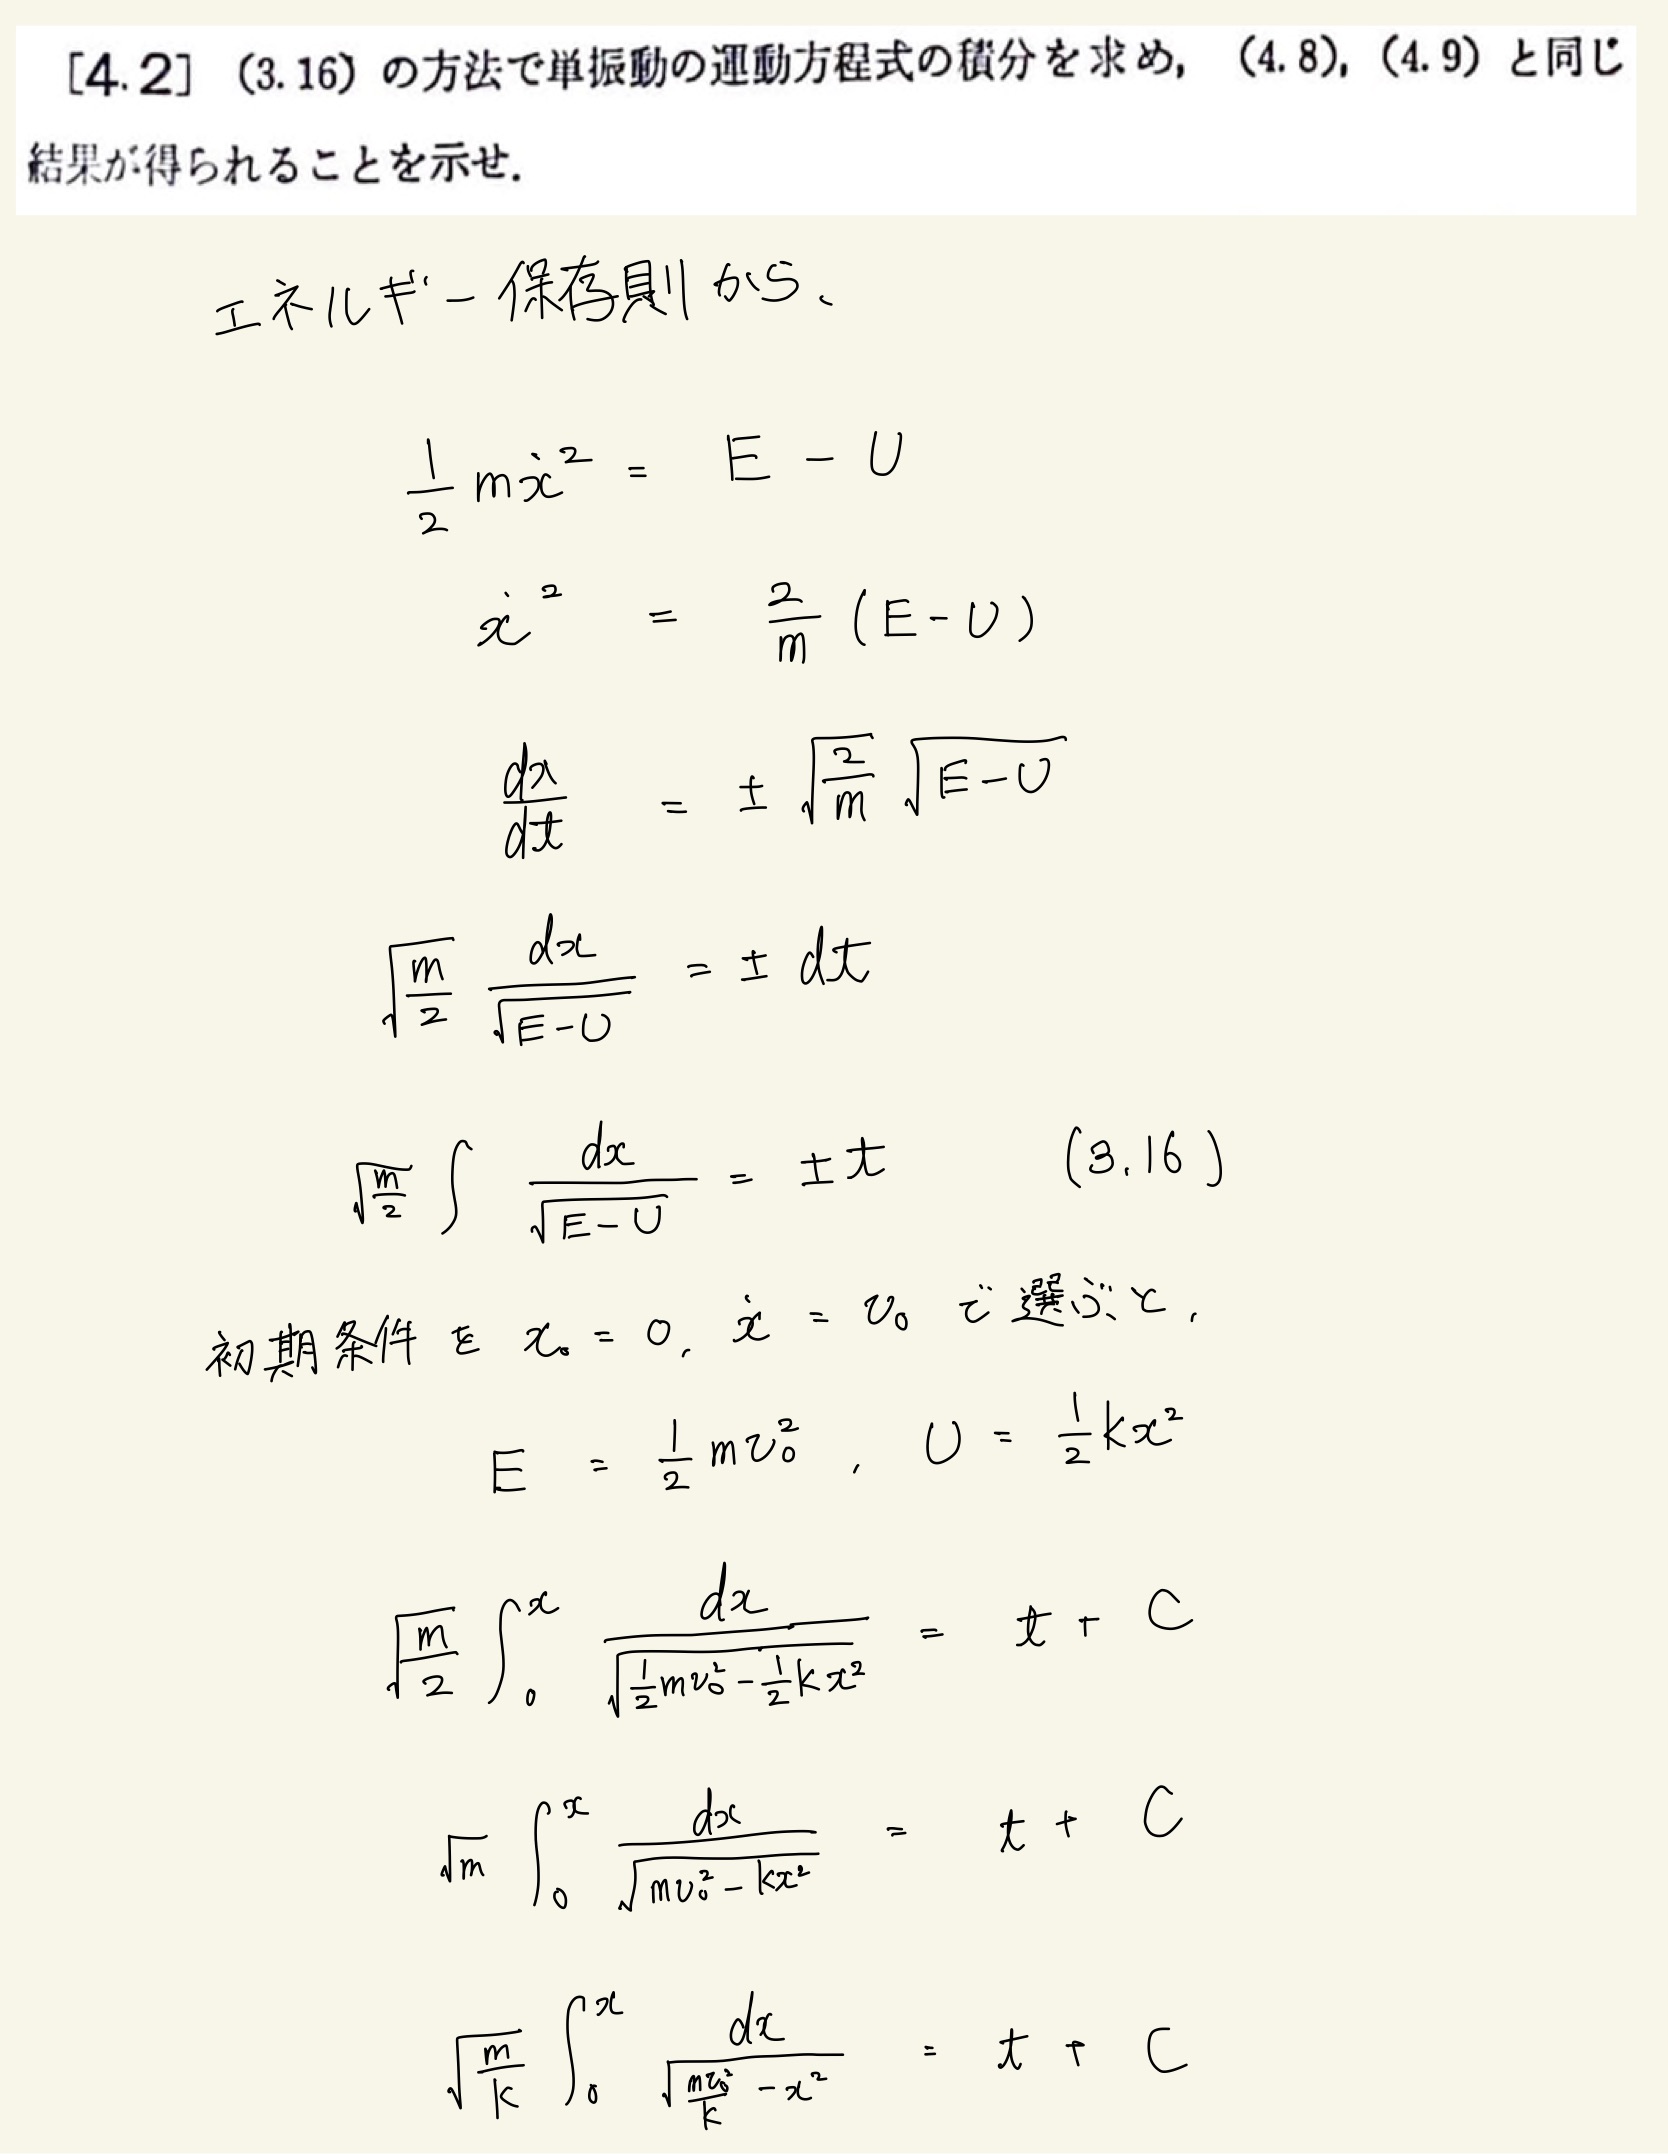 [4.2] (3.16) の方法で単振動の運動方程式の積分を求め, (4.8), (4.9) と同じ
結果が得られることを示せ.
エネルギー保存則から、
\frac{1}{2} m\dot{x}^2 = E - U
\dot{x}^2 = \frac{2}{m} (E - U)
\frac{dx}{dt} = ± \sqrt{\frac{2}{m}} \sqrt{E - U}
\sqrt{\frac{m}{2}} \frac{dx}{\sqrt{E - U}} = ± dt
\sqrt{\frac{m}{2}} \int \frac{dx}{\sqrt{E - U}} = ± t (3.16)
初期条件を x_0 = 0, \dot{x} = v_0 で選ぶと,
E = \frac{1}{2} m v_0^2 , U = \frac{1}{2} k x^2
\sqrt{\frac{m}{2}} \int_0^x \frac{dx}{\sqrt{\frac{1}{2} m v_0^2 - \frac{1}{2} k x^2}} = t + C
\sqrt{m} \int_0^x \frac{dx}{\sqrt{m v_0^2 - k x^2}} = t + C
\sqrt{\frac{m}{k}} \int_0^x \frac{dx}{\sqrt{\frac{m v_0^2}{k} - x^2}} = t + C